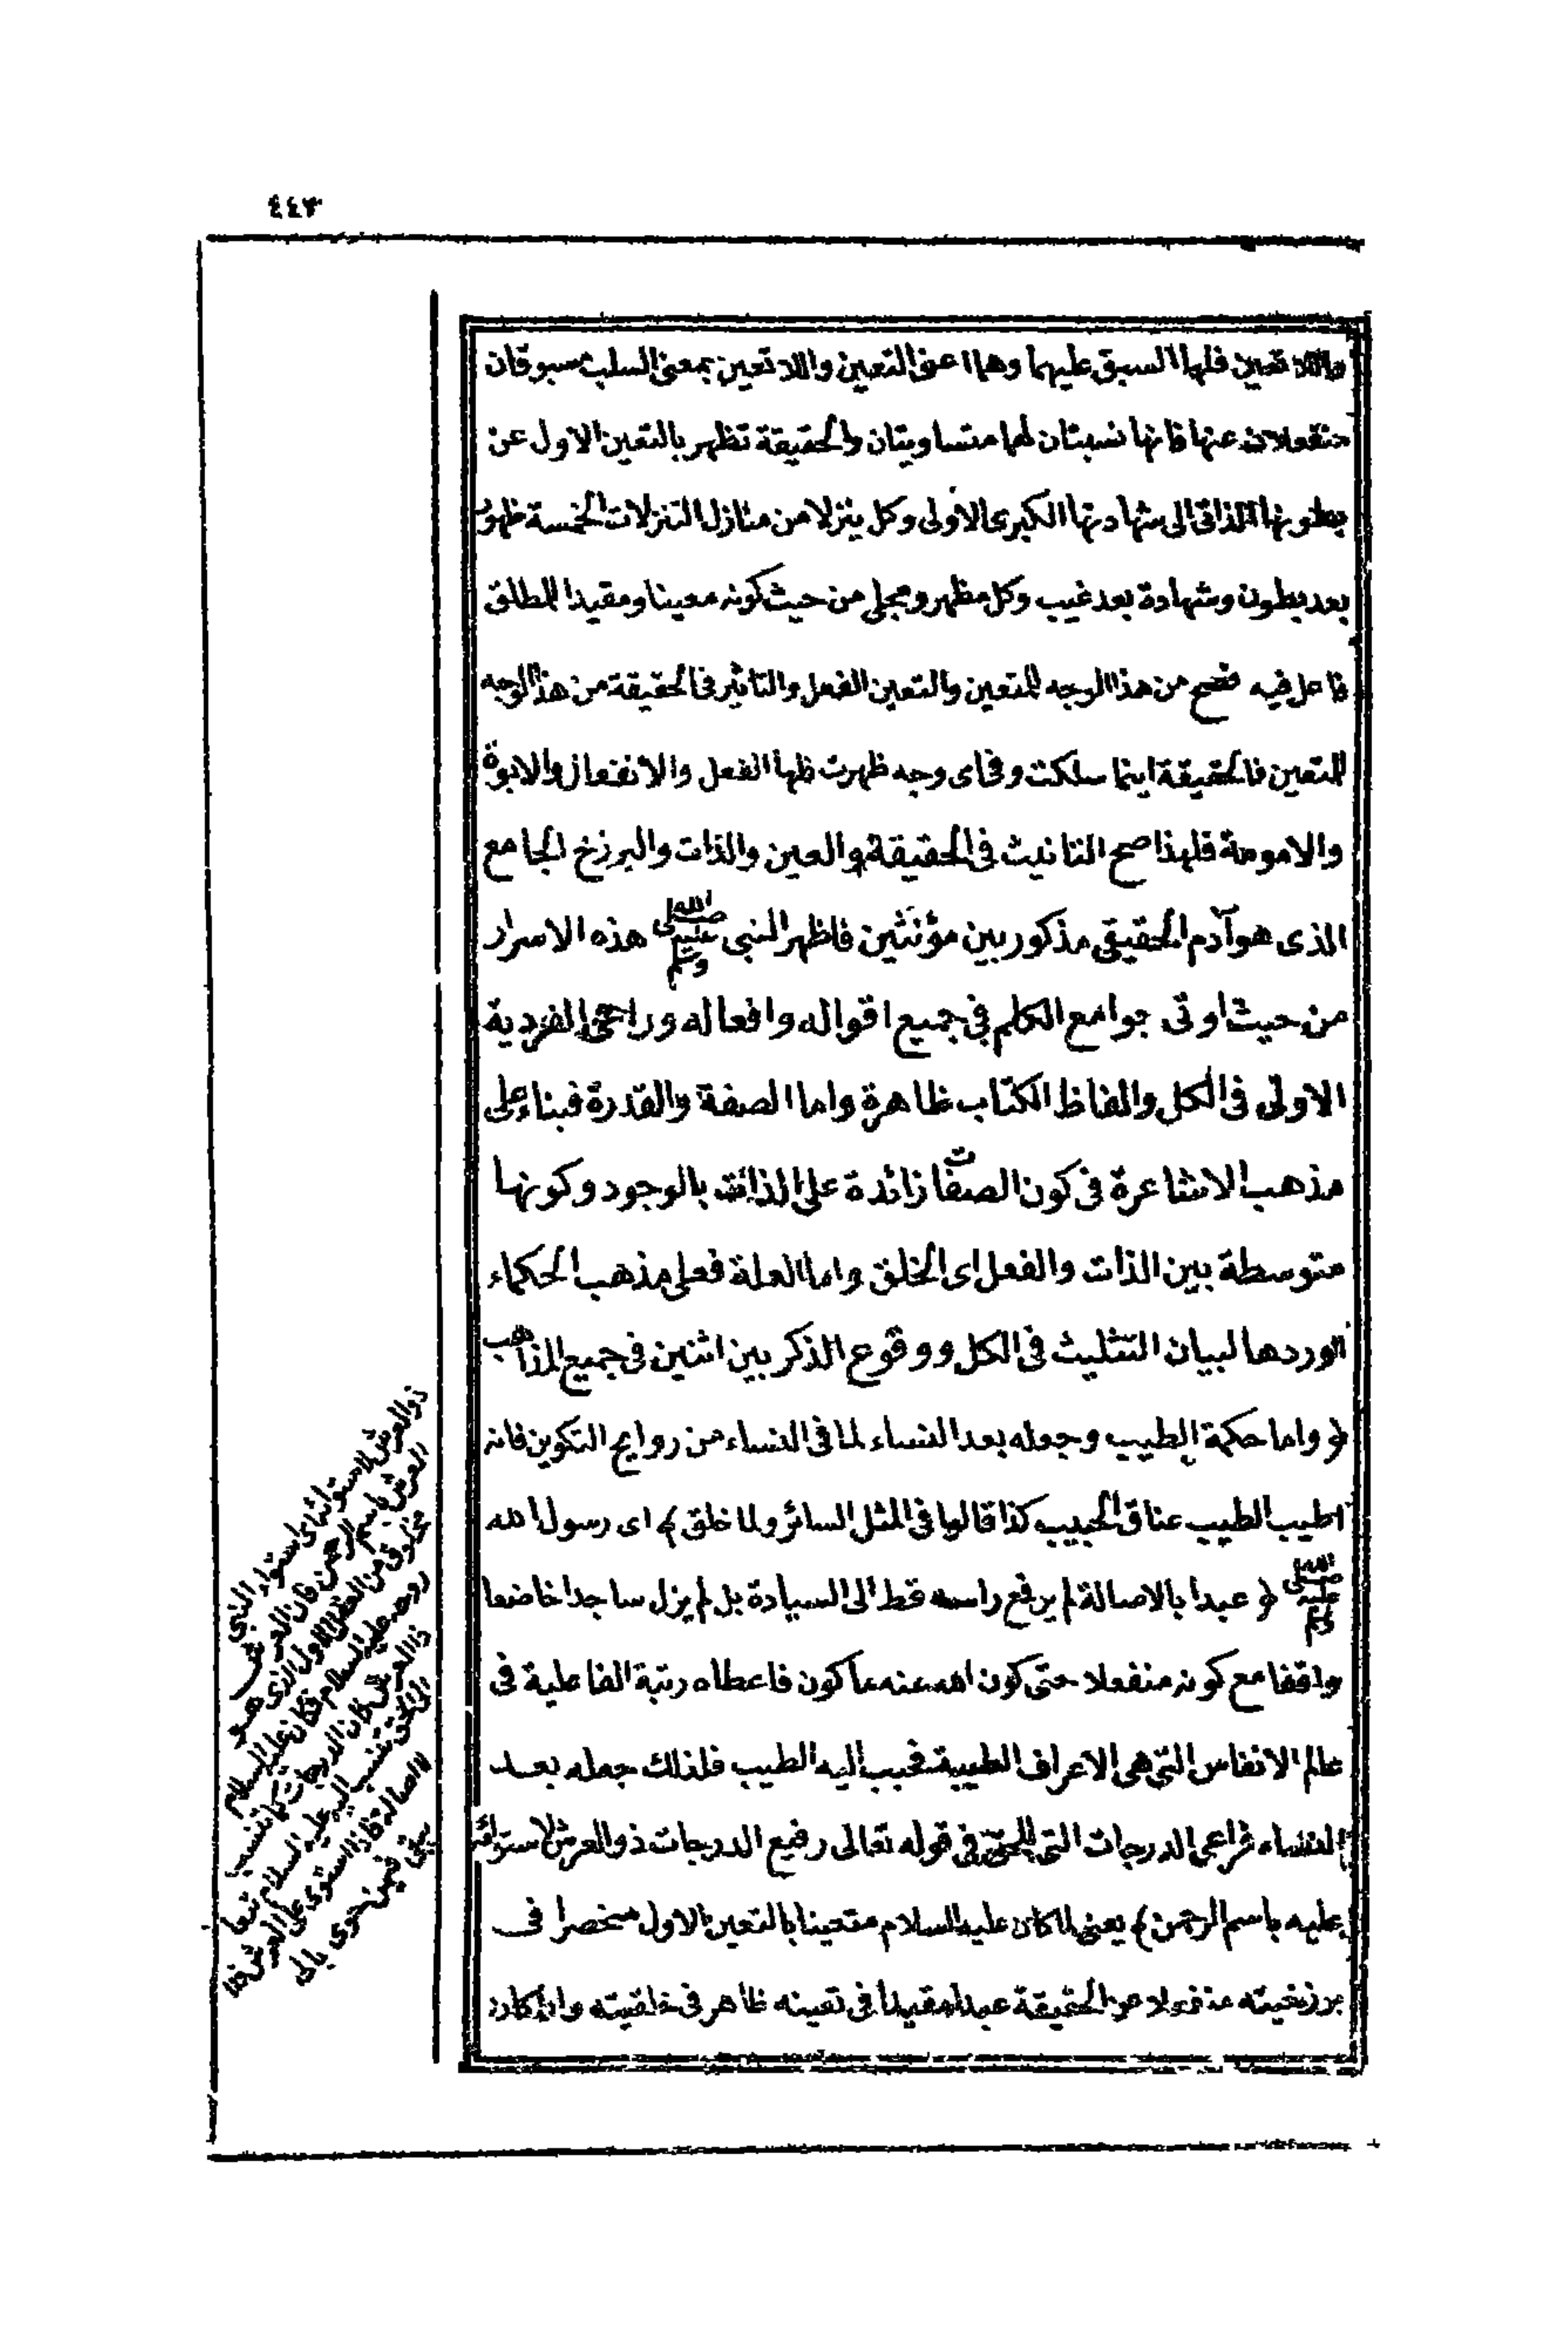 ٤٤٣
واللا تعين فلها السبق عليهما وهما اعنى التعين واللا تعين بمعنى السلب مسبوقان
منفعلان عنها فانها نسبتان لها متساويتان والحقيقة تظهر بالتعين الاول عن
بطونها الذاتى الى شهادتها الكبرى الاولى وكل ينزلا من منازل التنزلات الخمسة ظهور
بعد بطون وشهادة بعد غيب وكل مظهر ومجلى من حيث كونه معينا ومقيدا للمطلق
فاعل فيه فصح من هذا الوجه للمتعين والتعين الفعل والتاثير فى الحقيقة من هذا الوجه
للتعين فالحقيقة اينما سلكت وفى اى وجه ظهرت ظها الفعل والانفعال والابوة
والامومة فلهذا صح التانيث فى الحقيقة والعين والذات والبرزخ الجامع
الذى هو آدم الحقيقى مذكور بين مؤنثين فاظهر النبى صلى الله عليه وسلم هذه الاسرار
من حيث اوتى جوامع الكلم فى جميع اقواله وافعاله وراعى الفردية
الاولى فى الكل والفاظ الكتاب ظاهرة واما الصفة والقدرة فبناء على
مذهب الاشاعرة فى كون الصفات زائدة على الذات بالوجود وكونها
متوسطة بين الذات والفعل اى الخلق واما العلة فعلى مذهب الحكماء
اوردها لبيان التثليث فى الكل ووقوع الذكر بين اثنين فى جميع المذاهب
﴿ واما حكمة الطيب وجعله بعد النساء لما فى النساء من روايح التكوين فانه
اطيب الطيب عناق الحبيب كذا قالوا فى المثل السائر ولما خلق ﴾ اى رسول الله
صلى الله عليه وسلم ﴿ عبدا بالاصالة لم يرفع راسه قط الى السيادة بل لم يزل ساجدا خاضعا
واقفا مع كونه منفعلا حتى كون الله عنه ما كون فاعطاه رتبة الفاعلية فى
عالم الانفاس التى هى الاعراف الطيبة فحبب اليه الطيب فلذلك جعله بعد
النساء فراعى الدرجات التى للحق فى قوله تعالى رفيع الدرجات ذو العرش لاستوائه
عليه باسم الرحمن ﴾ يعنى لما كان عليه السلام متعينا بالتعين الاول منحصرا فى
برزخيته منفعلا عن الحقيقة عبدا مقيدا فى تعينه ظاهر فى خلقيته واذا كان
ذو العرش لاستوائه اى استواء النبى
العرش باسم الرحمن فان العرش
مخلوق من العقل الاول الذى هو
روحه عليه السلام فكان عليه السلام
ذا العرش كان الدرجات كما تنسب
الى الحق تنسب اليه عليه السلام تبعا
لا اصالة فاذا استوى على العرش فلا